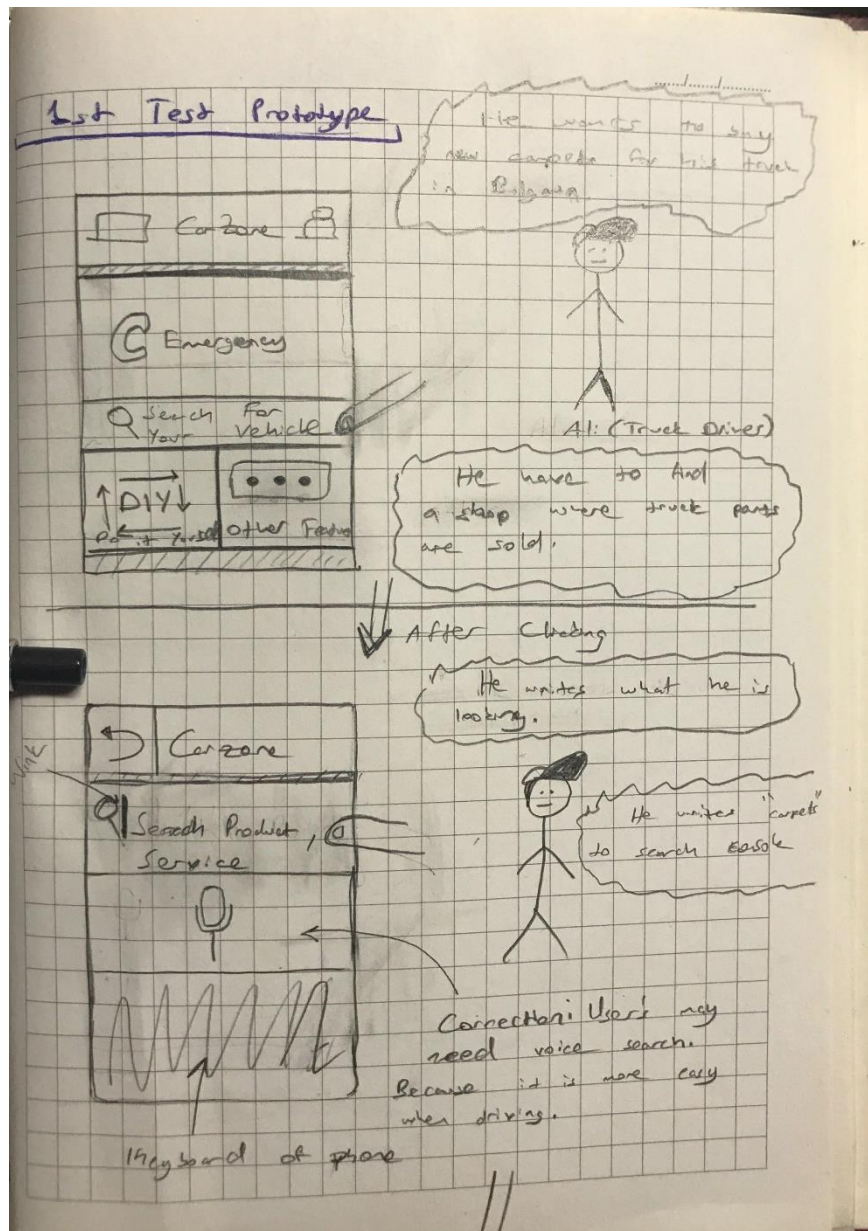 1st Test Prototype
He wants to buy
new carpets for his truck
in
CarZone
Emergency
Search For
Your Vehicle
DIY
Do it Yourself
Other Feature
Ali (Truck Driver)
He have to find
a shop where truck parts
are sold.
After Clicking
He writes what he is
looking.
Carzone
Search Product,
Service
He writes "carpets"
to search
Correction: User's may
need voice search.
Because it is more easy
when driving.
Keyboard of phone